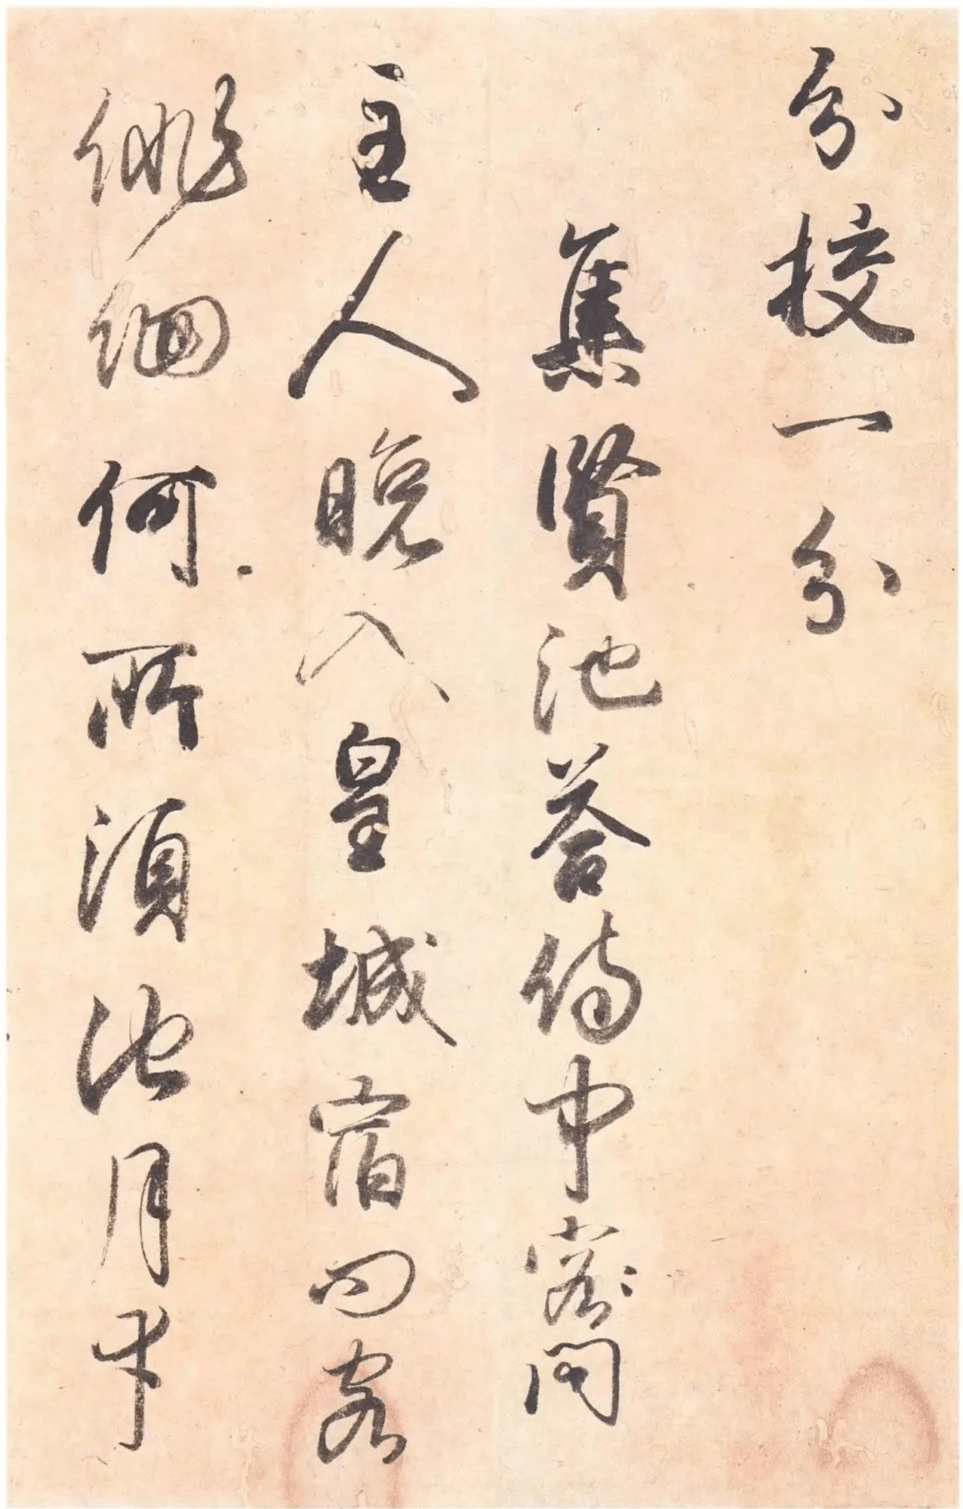 分校一分
集賢池答侍中客問
主人晚入皇城宿問客
徘徊何所須池月幸